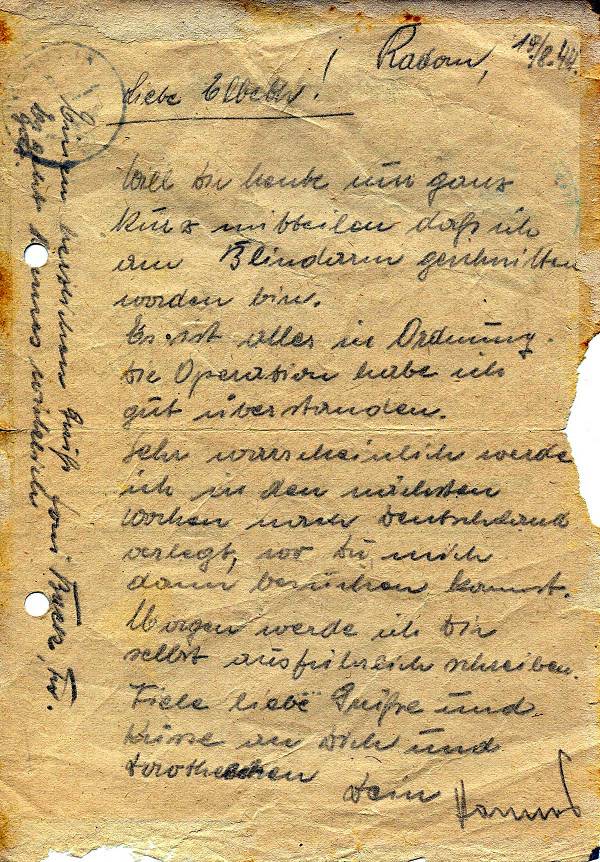 Radom, 18/8.44.
Liebe Elbeth!
Will Dir heute nur ganz
kurz mitteilen daß ich
am Blindarm geschnitten
worden bin.
Es ist alles in Ordnung.
Die Operation habe ich
gut überstanden.
Sehr warscheinlich werde
ich in den nächsten
Wochen nach Deutschland
verlegt, wo Du mich
dann besuchen kannst.
Morgen werde ich Dir
selbst ausführlich schreiben.
Viele liebe Grüße und
Küsse an Dich und
Dorotheechen
Dein Hannes
Einen herzlichen Gruß
Es geht Hannes wirklich
gut.